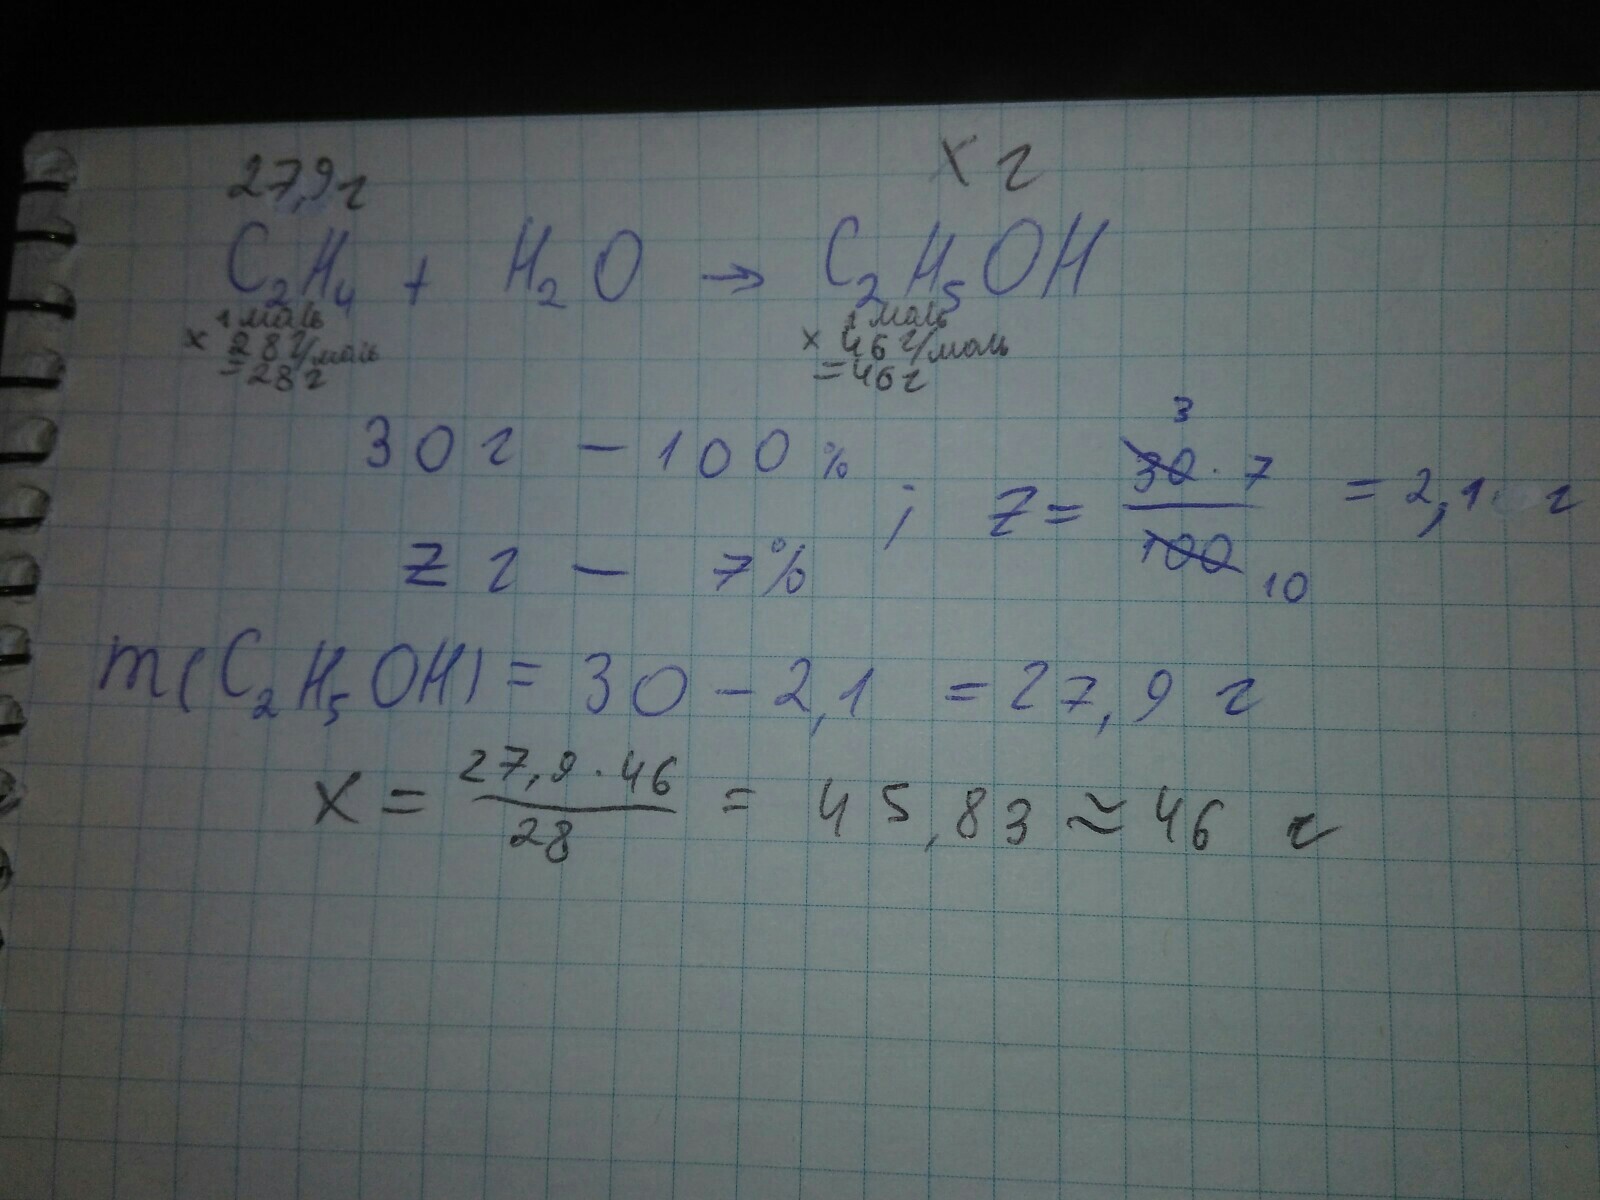 27,9г х г
C₂H₄ + H₂O → C₂H₅OH
1 моль 1 моль
х 28 г/моль х 46 г/моль
= 28 г = 46 г
30 г – 100% ; z = 30 · 7 / 100 = 2,1 г
3
10
z г – 7%
m(C₂H₅OH) = 30 – 2,1 = 27,9 г
х = 27,9 · 46 / 28 = 45,83 ≈ 46 г